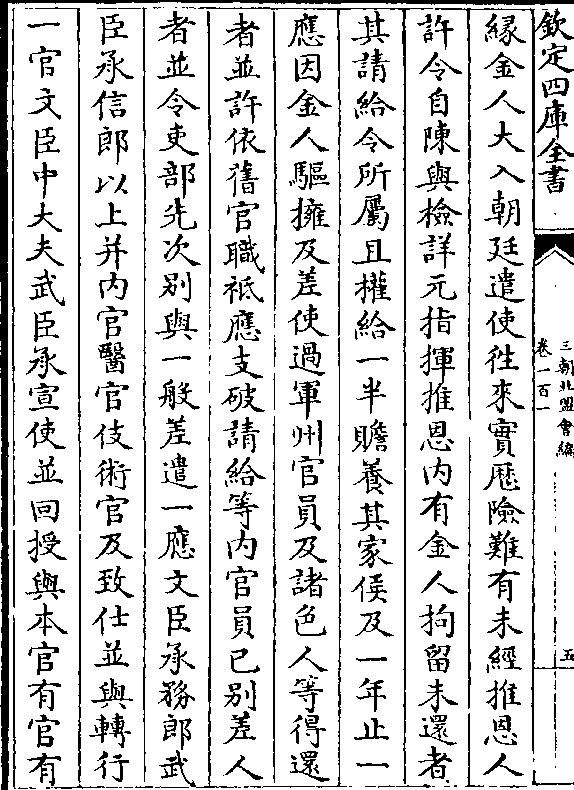 欽定四庫全書
三朝北盟會編
卷一百一
五
緣金人大入朝廷遣使往來實歴險難有未經推恩人
許令自陳與檢詳元指揮推恩内有金人拘留未還者
其請給令所屬且權給一半贍養其家俟及一年止一
應因金人驅擁及差使過軍州官員及諸色人等得還
者並許依舊官職祗應支破請給等内官員已别差人
者並令吏部先次别與一般差遣一應文臣承務郎武
臣承信郎以上并内官醫官伎術官及致仕並與轉行
一官文臣中大夫武臣承宣使並回授與本官有官有